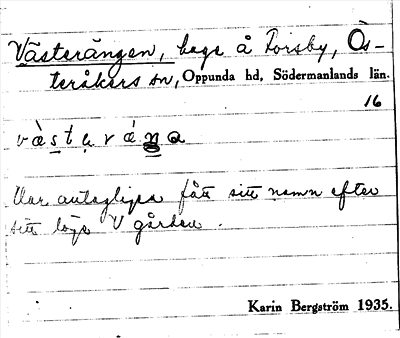 Västerängen, hage å Forsby, Ös-
teråkers sn, Oppunda hd, Södermanlands län.
16
vàstərä́ŋa
Har antagligen fått sitt namn efter
sitt läge V gården.
Karin Bergström 1935.